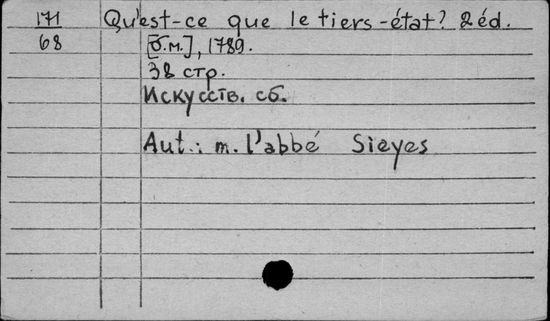 171 Qu'est-ce que le tiers-état? 2 éd.
68 [б.м.], 1789.
38 стр.
Искусств. сб.
Aut.: m. l'abbé Sieyes